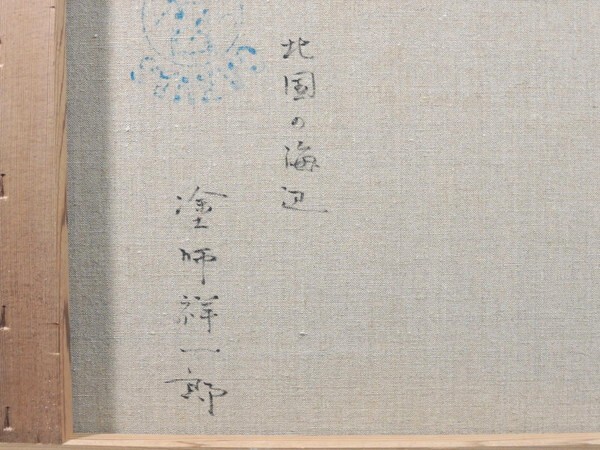 北国の海辺
塗師祥一郎